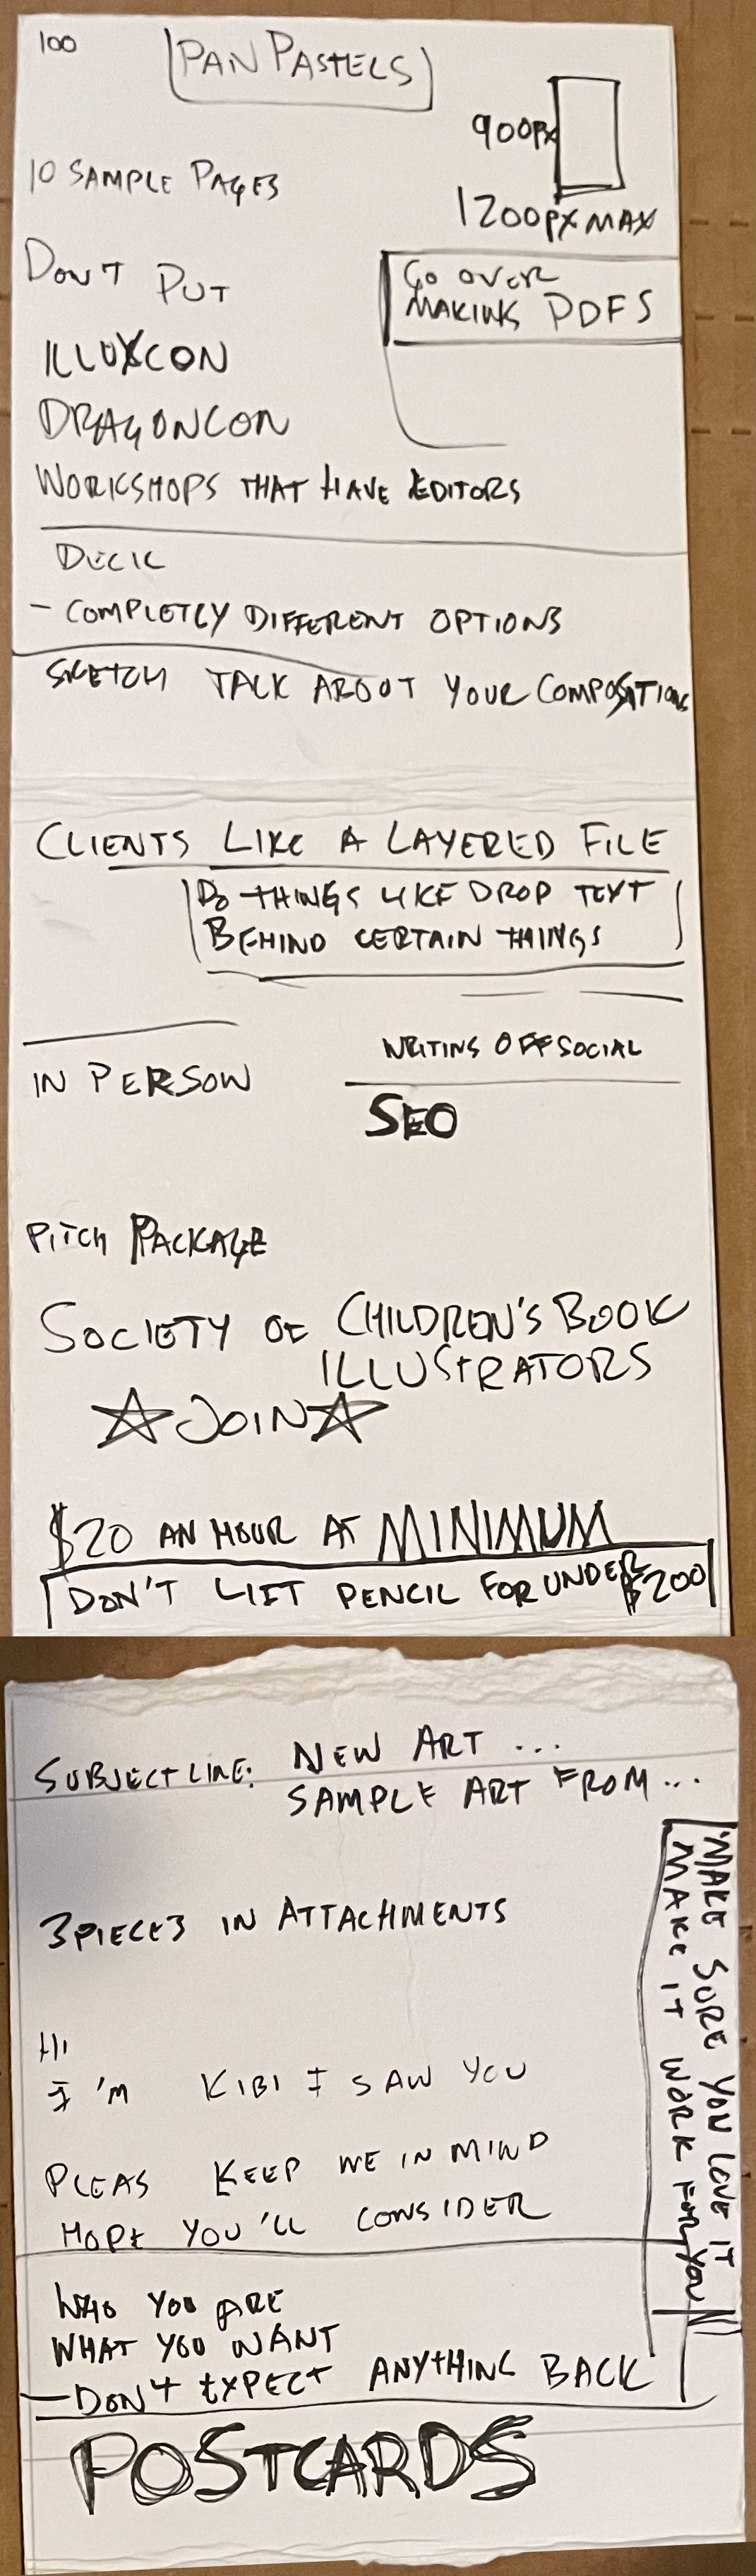 100
PAN PASTELS
900PX
10 SAMPLE PAGES
1200PX MAX
DON'T PUT
GO OVER
MAKING PDFS
ILLUXCON
DRAGONCON
WORKSHOPS THAT HAVE EDITORS
DECK
- COMPLETLY DIFFERENT OPTIONS
SKETCH TALK ABOUT YOUR COMPOSITIONS
CLIENTS LIKE A LAYERED FILE
DO THINGS LIKE DROP TEXT
BEHIND CERTAIN THINGS
WRITING OFF SOCIAL
IN PERSON
SEO
PITCH PACKAGE
SOCIETY OF CHILDREN'S BOOK
ILLUSTRATORS
☆ JOIN ☆
$20 AN HOUR AT MINIMUM
DON'T LIFT PENCIL FOR UNDER $200
SUBJECT LINE: NEW ART ...
SAMPLE ART FROM ...
MAKE SURE YOU LOVE IT
MAKE IT WORK FOR YOU
3 PIECES IN ATTACHMENTS
HI
I'M KIBI I SAW YOU
PLEAS KEEP ME IN MIND
HOPE YOU'LL CONSIDER
WHO YOU ARE
WHAT YOU WANT
- DON'T EXPECT ANYTHING BACK
POSTCARDS